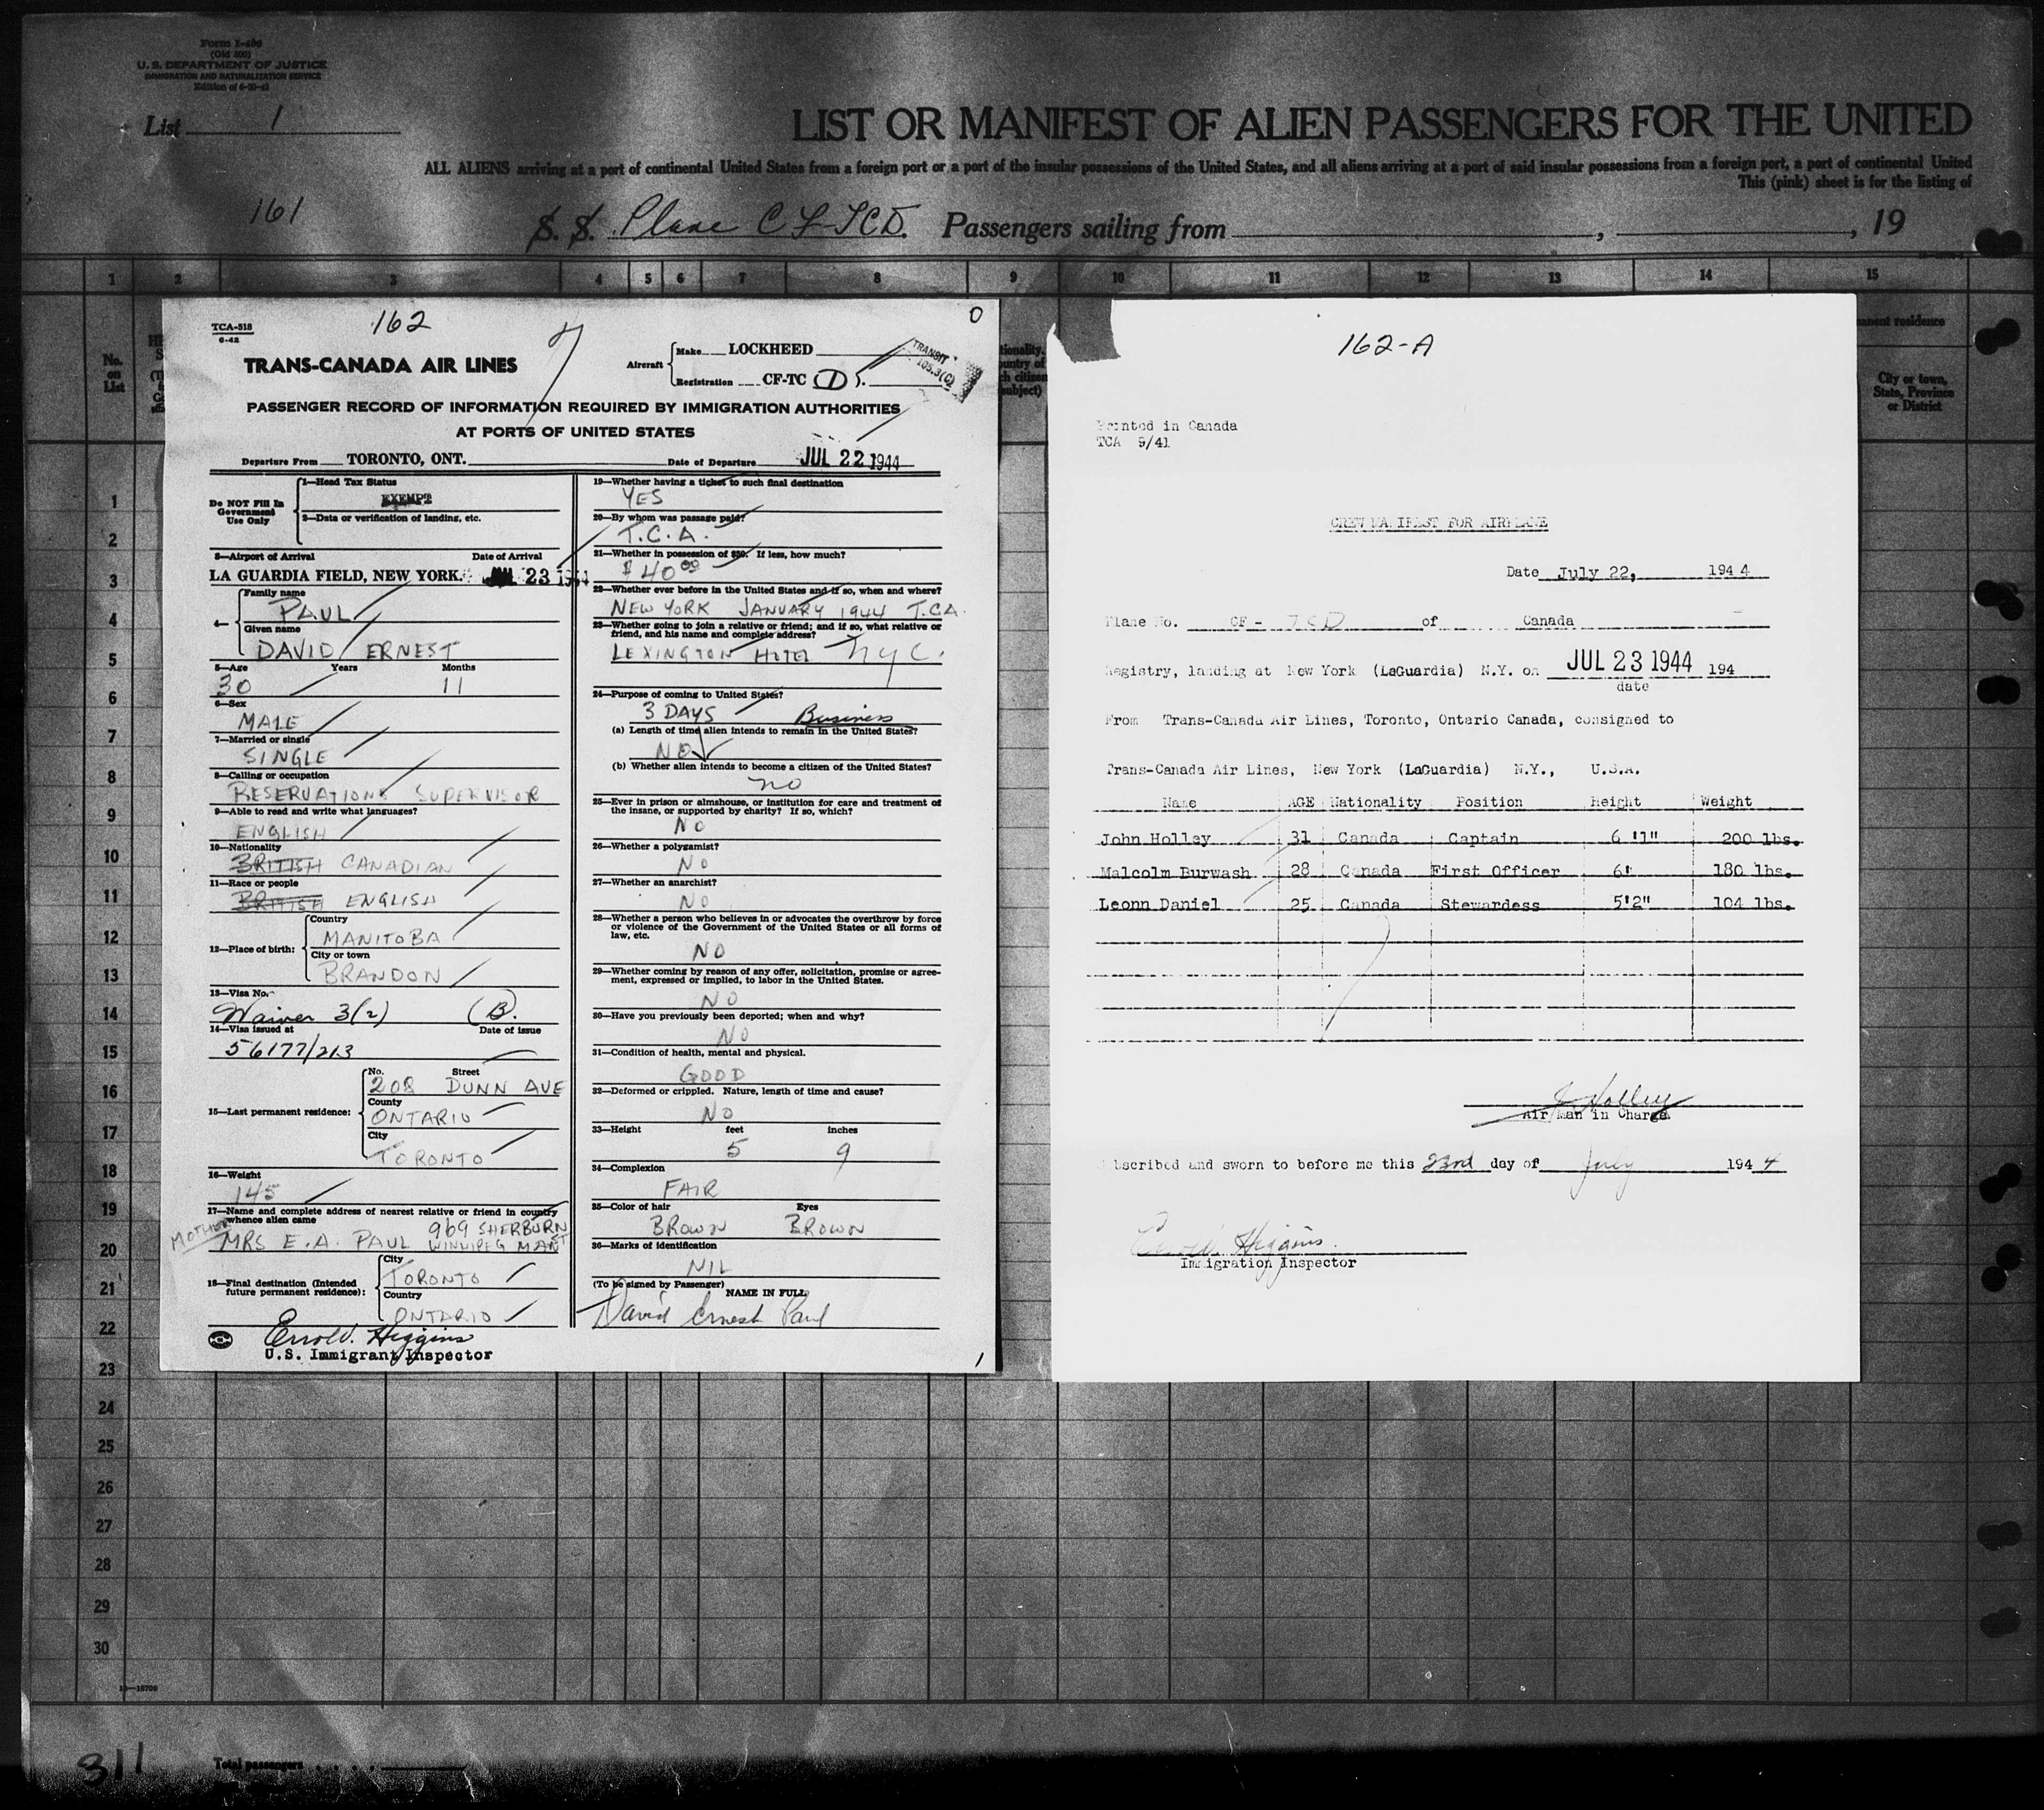 Form I-400
(Old 500)
U. S. DEPARTMENT OF JUSTICE
IMMIGRATION AND NATURALIZATION SERVICE
List 1
LIST OR MANIFEST OF ALIEN PASSENGERS FOR THE UNITED
ALL ALIENS arriving at a port of continental United States from a foreign port or a port of the insular possessions of the United States, and all aliens arriving at a port of said insular possessions from a foreign port, a port of continental United
This (pink) sheet is for the listing of
161
S. S. Plane CF-TCD. Passengers sailing from , , 19
1 2 3 4 5 6 7 8 9 10 11 12 13 14 15
No. on List
permanent residence
City or town, State, Province or District
162
0
TCA-518
6-42
TRANS-CANADA AIR LINES
Aircraft
Make LOCKHEED
Registration CF-TC (D).
TRANSIT
105.3(C)
PASSENGER RECORD OF INFORMATION REQUIRED BY IMMIGRATION AUTHORITIES
AT PORTS OF UNITED STATES
Departure From TORONTO, ONT. Date of Departure JUL 22 1944
Do NOT Fill In Government Use Only
1—Head Tax Status
EXEMPT
2—Data or verification of landing, etc.
3—Airport of Arrival Date of Arrival
LA GUARDIA FIELD, NEW YORK. JUL 23 1944
4—
Family name
PAUL
Given name
DAVID ERNEST
5—Age Years Months
30 11
6—Sex
MALE
7—Married or single
SINGLE
8—Calling or occupation
RESERVATIONS SUPERVISOR
9—Able to read and write what languages?
ENGLISH
10—Nationality
BRITISH CANADIAN
11—Race or people
BRITISH ENGLISH
12—Place of birth:
Country
MANITOBA
City or town
BRANDON
13—Visa No.
Waiver 3(2) (B).
14—Visa issued at Date of issue
56177/213
15—Last permanent residence:
No. Street
208 DUNN AVE
County
ONTARIO
City
TORONTO
16—Weight
145
17—Name and complete address of nearest relative or friend in country
whence alien came
MOTHER
969 SHERBURN ST
MRS E.A. PAUL WINNIPEG MAN
18—Final destination (Intended
future permanent residence):
City
TORONTO
Country
ONTARIO
Errol V. Higgins
U.S. Immigrant Inspector
19—Whether having a ticket to such final destination
YES
20—By whom was passage paid?
T.C.A.
21—Whether in possession of $50. If less, how much?
$ 40 00
22—Whether ever before in the United States and if so, when and where?
NEW YORK JANUARY 1944 T.C.A.
23—Whether going to join a relative or friend; and if so, what relative or
friend, and his name and complete address?
LEXINGTON HOTEL NYC.
24—Purpose of coming to United States?
3 DAYS Business
(a) Length of time alien intends to remain in the United States?
NO
(b) Whether alien intends to become a citizen of the United States?
no
25—Ever in prison or almshouse, or institution for care and treatment of
the insane, or supported by charity? If so, which?
NO
26—Whether a polygamist?
NO
27—Whether an anarchist?
NO
28—Whether a person who believes in or advocates the overthrow by force
or violence of the Government of the United States or all forms of
law, etc.
NO
29—Whether coming by reason of any offer, solicitation, promise or agree-
ment, expressed or implied, to labor in the United States.
NO
30—Have you previously been deported; when and why?
NO
31—Condition of health, mental and physical.
GOOD
32—Deformed or crippled. Nature, length of time and cause?
NO
33—Height feet inches
5 9
34—Complexion
FAIR
35—Color of hair Eyes
BROWN BROWN
36—Marks of identification
NIL
(To be signed by Passenger) NAME IN FULL
David Ernest Paul
1
162-A
Printed in Canada
TCA 9/41
CREW MANIFEST FOR AIRPLANE
Date July 22, 1944
Plane No. CF - TCD of Canada
Registry, landing at New York (LaGuardia) N.Y. on JUL 23 1944 194
date
From Trans-Canada Air Lines, Toronto, Ontario Canada, consigned to
Trans-Canada Air Lines, New York (LaGuardia) N.Y., U.S.A.
Name AGE Nationality Position Height Weight
John Holley 31 Canada Captain 6 '1" 200 lbs.
Malcolm Burwash 28 Canada First Officer 6' 180 lbs.
Leonn Daniel 25 Canada Stewardess 5'2" 104 lbs.
J Holley
Air Man in Charge
bscribed and sworn to before me this 23rd day of July 1944
Errol V. Higgins
Immigration Inspector
1
2
3
4
5
6
7
8
9
10
11
12
13
14
15
16
17
18
19
20
21
22
23
24
25
26
27
28
29
30
311
Total passengers